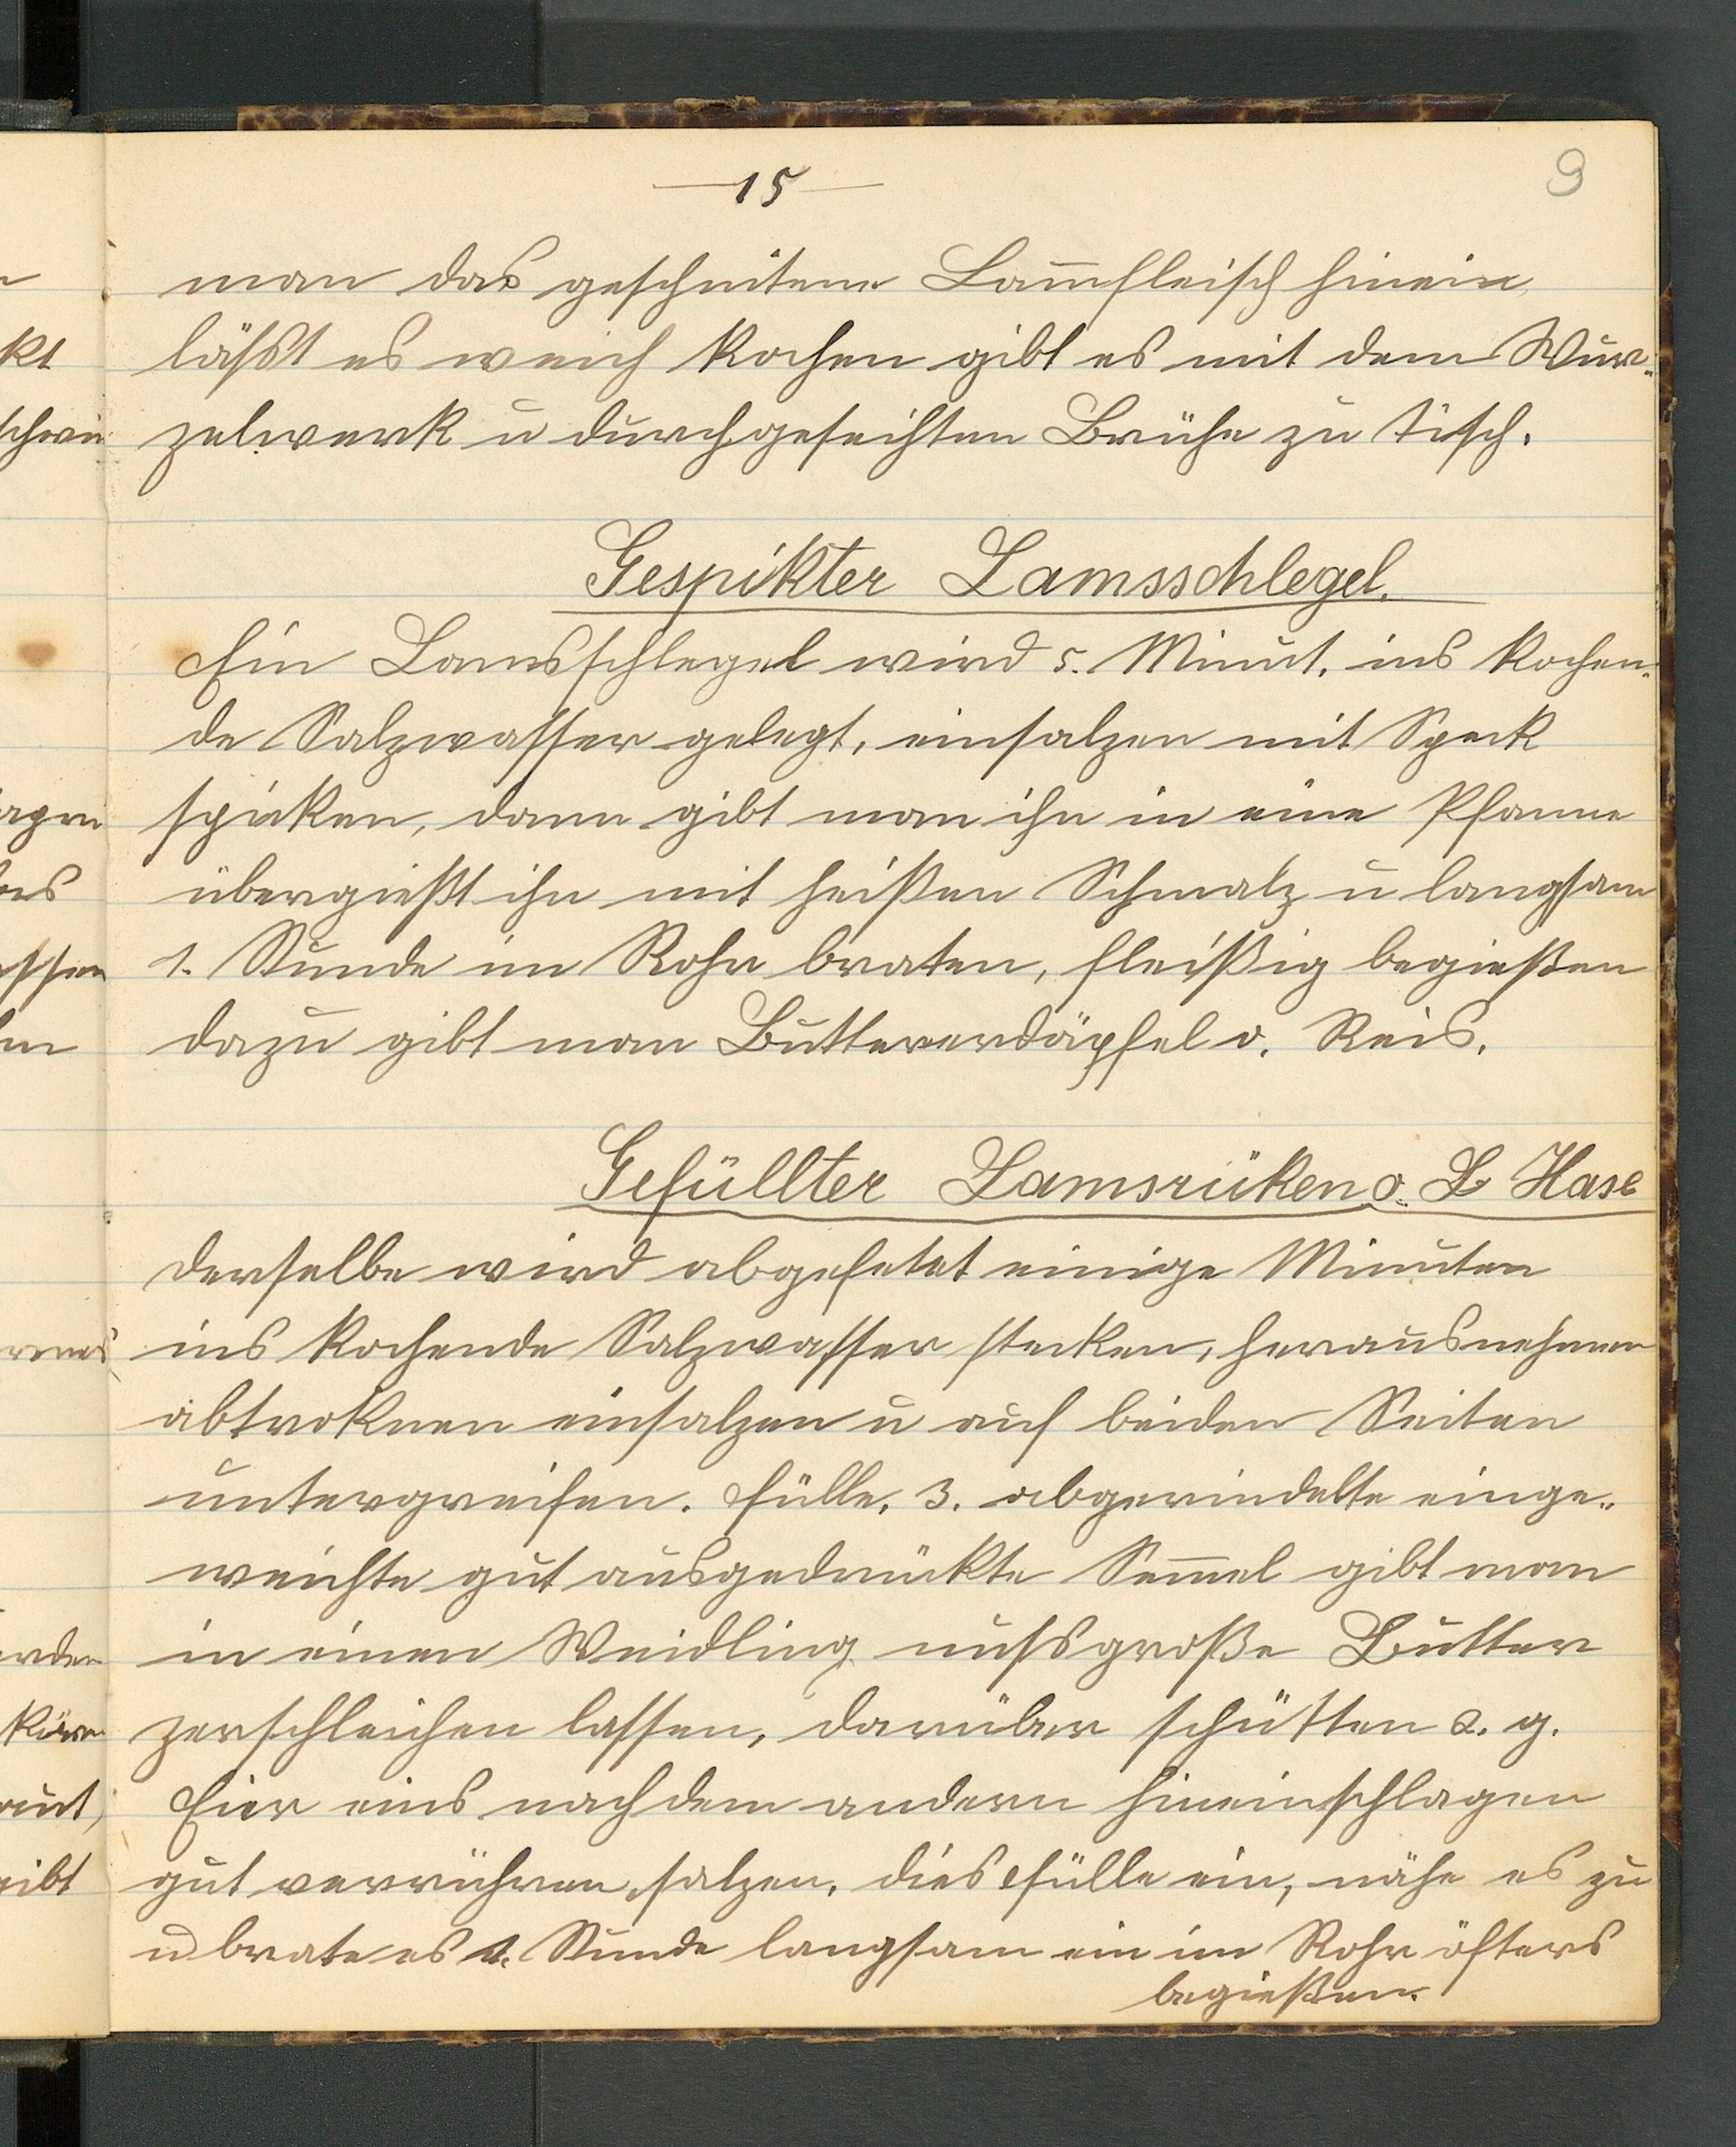 —15—
9
man das geschnitene Lam̅fleisch hinein
läßt es weich kochen gibt es mit dem Wur-
zelwerk u durchgeseihten Brühe zu tisch.
Gespikter Lamsschlegel.
Ein Lamsschlegel wird 5. Minut. ins kochen-
de Salzwasser gelegt, einsalzen mit Speck
spicken, dann gibt man ihn in eine Pfanne
übergießt ihn mit heißen Schmalz u langsam
1. Stunde im Rohr braten, fleißig begießen
dazu gibt man Buttererdäpfel o. Reis.
Gefüllter Lamsrüken o. L Hase
derselbe wird abgehetet einige Minuten
ins kochende Salzwasser stecken, herausnehmen
abtroknen einsalzen u auf beiden Seiten
untergreifen. Fülle, 3. abgerindelte einge-
weichte gut ausgedrückte Sem̅el gibt man
in einen Weidling nußgroße Butter
zerschleichen lassen, darüber schütten 2. g.
Eier eins nach dem andern hineinschlagen
gut verrühren, salzen, dies fülle ein, nähe es zu
u brate es 1. Stunde langsam ein im Rohr öfters
begießen.